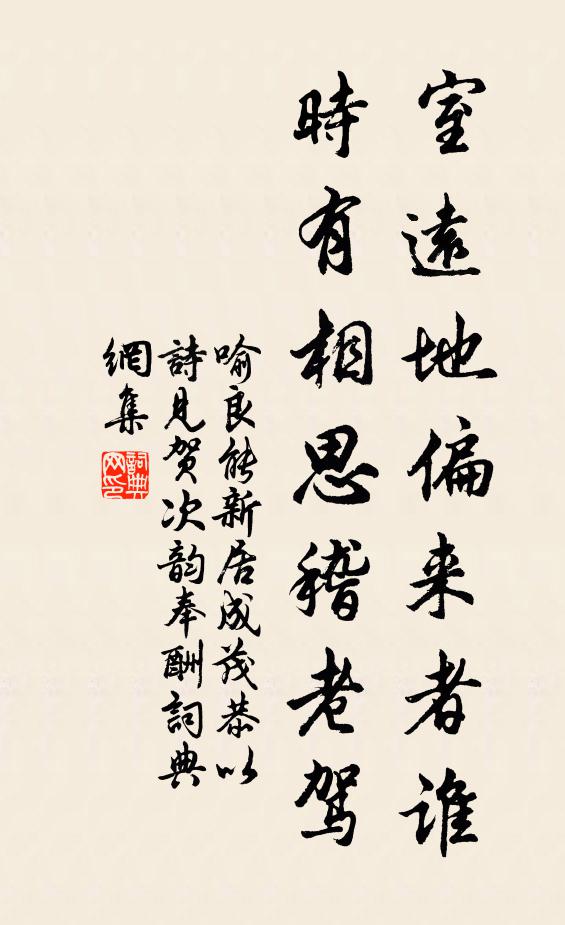 室遠地偏来者谁
時有相思稽老驾
喻良能新居成茂恭以
詩見贺次韵奉酬詞典
網集
詞典
网印